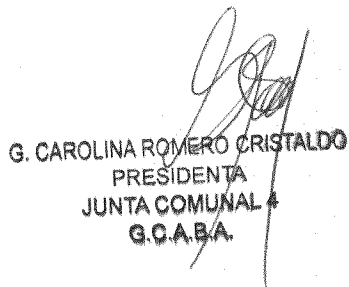 G. CAROLINA ROMERO CRISTALDO
PRESIDENTA
JUNTA COMUNAL 4
G.C.A.B.A.